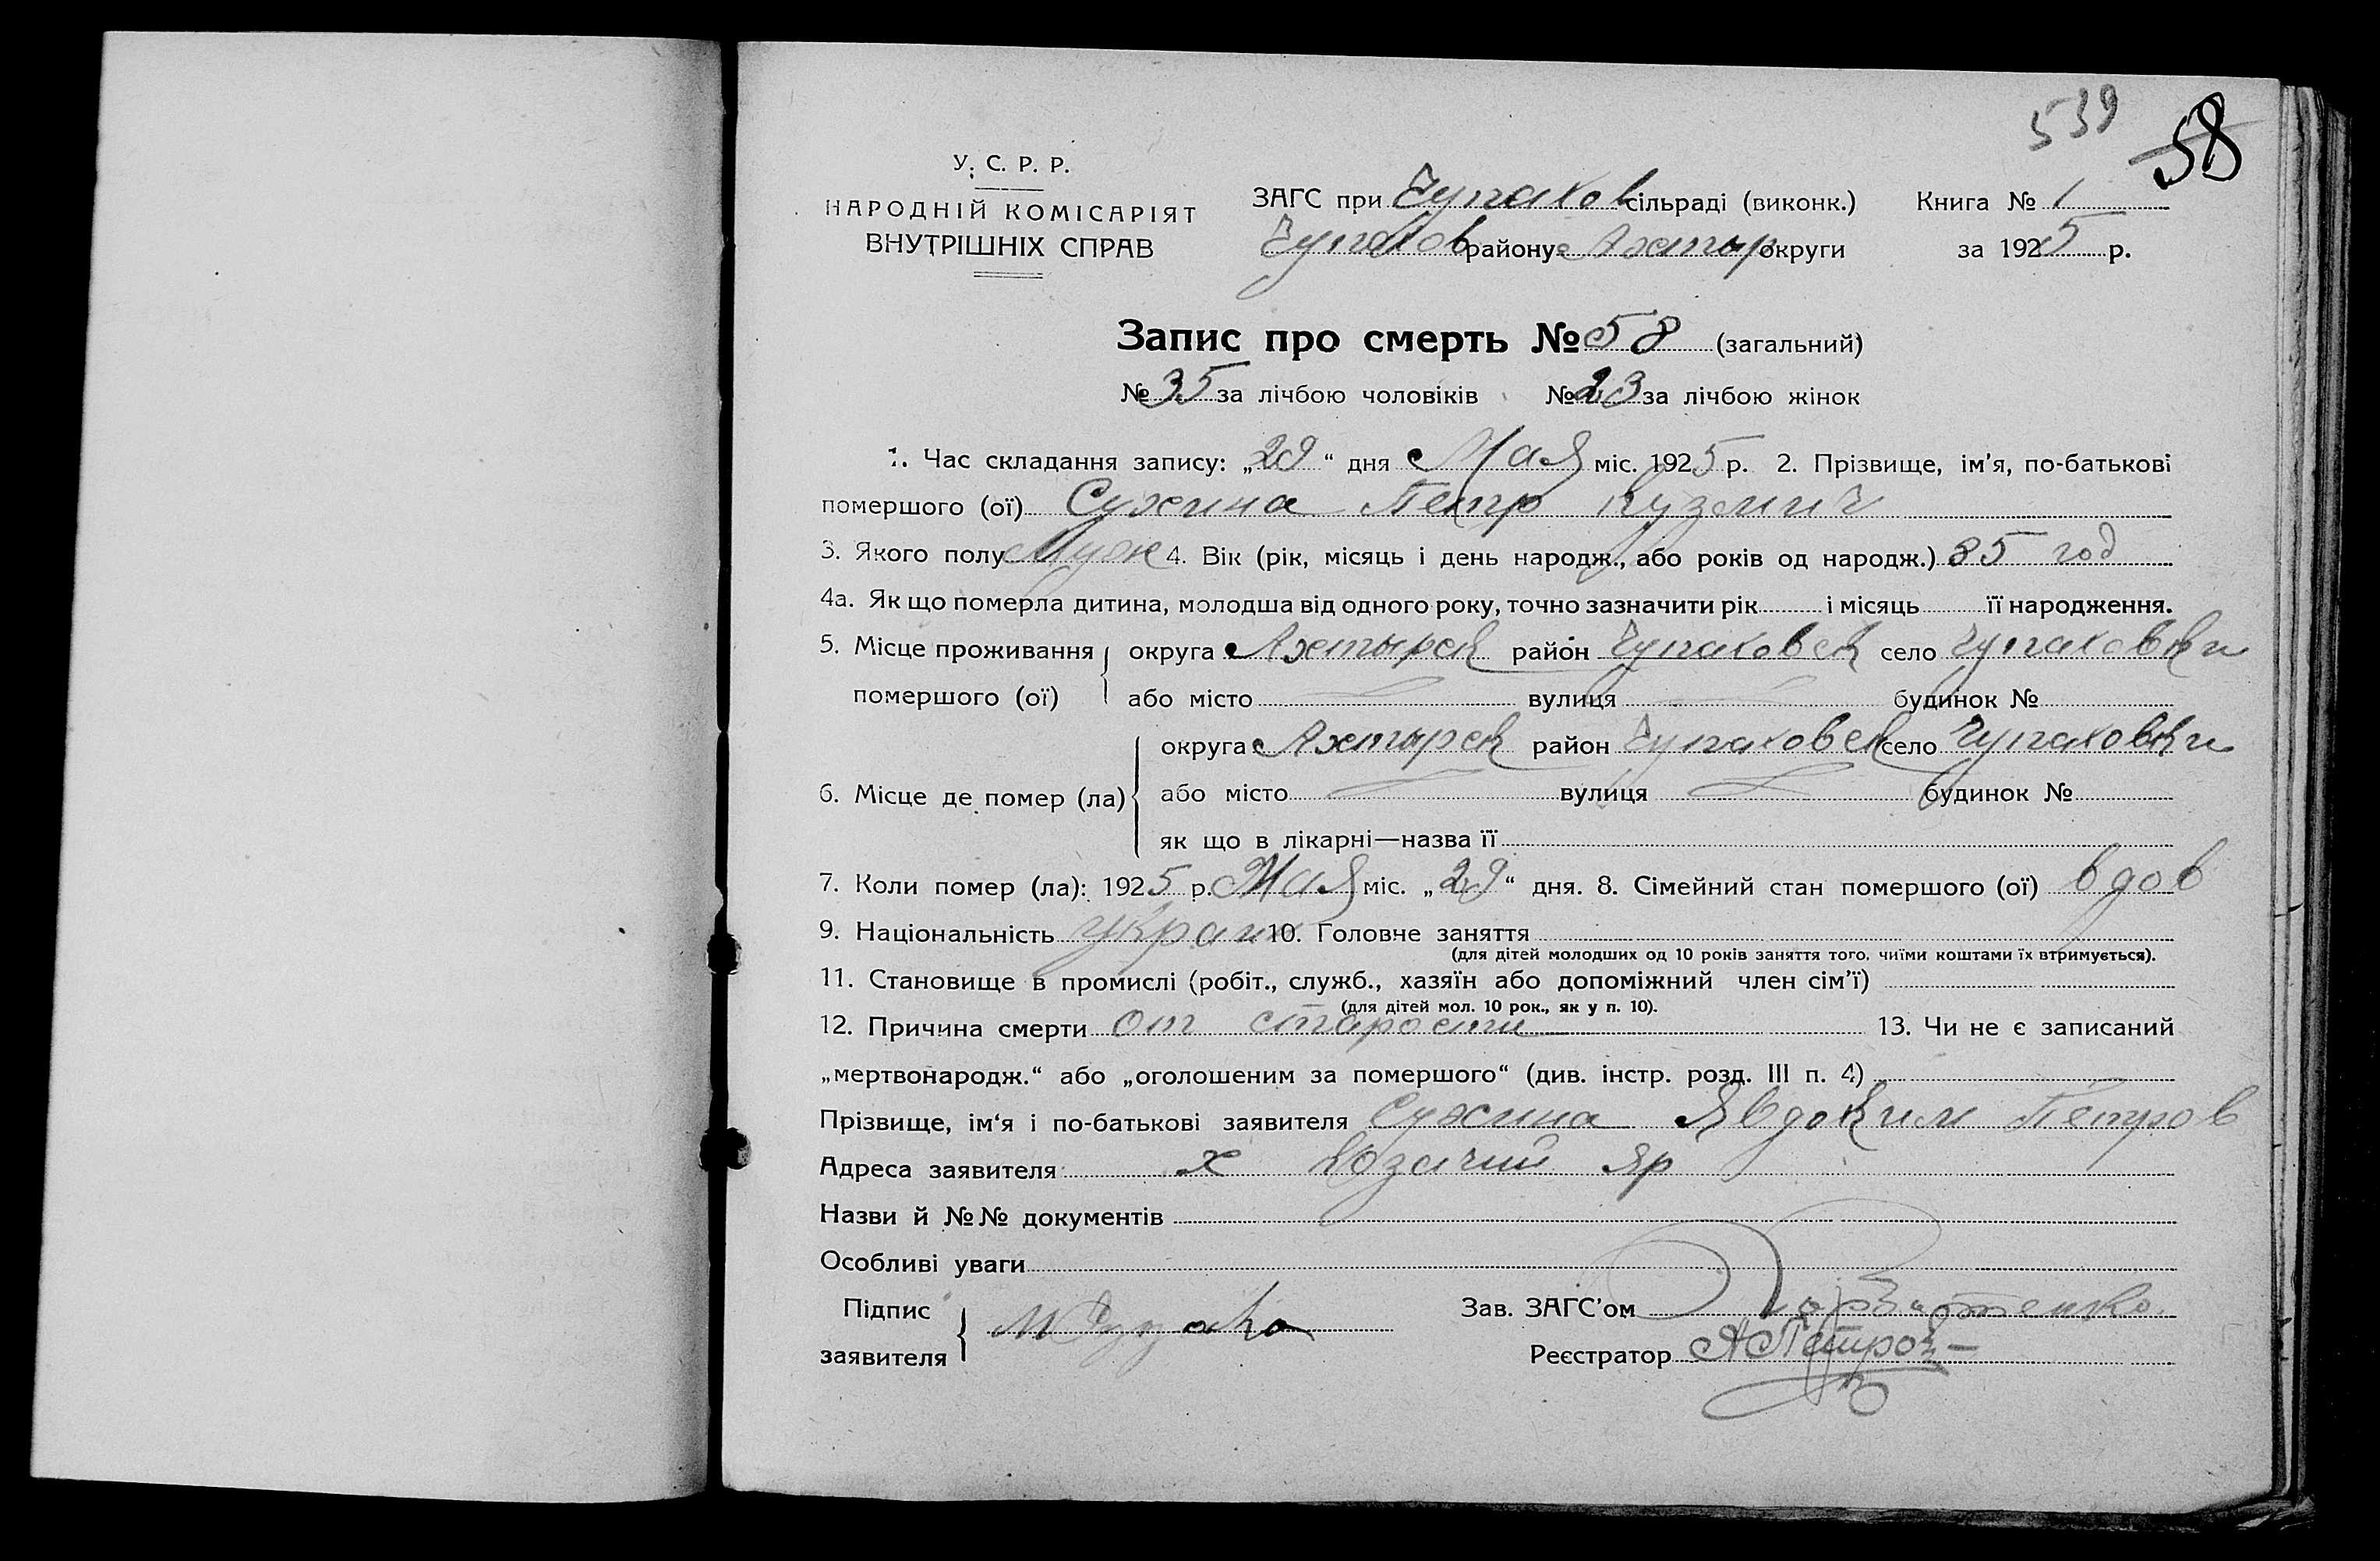 539 58
У. С. Р. Р.
НАРОДНІЙ КОМІСАРІЯТ
ВНУТРІШНІХ СПРАВ
ЗАГС при Чупахов сільраді (виконк.) Книга № 1
Чупахов району Ахтыр округи за 1925 р.
Запис про смерть № 58 (загальний)
№ 35 за лічбою чоловіків № 23 за лічбою жінок
1. Час складання запису: „29“ дня Мая міс. 1925 р. 2. Прізвище, ім’я, по-батькові
помершого (ої) Сухина Петр Кузмич
3. Якого полу Муж 4. Вік (рік, місяць і день народж., або років од народж.) 85 год
4а. Як що померла дитина, молодша від одного року, точно зазначити рік і місяць її народження.
5. Місце проживання округа Ахтырск район Чупаховск село Чупаховки
помершого (ої) або місто вулиця будинок №
округа Ахтырск район Чупаховск село Чупаховки
6. Місце де помер (ла) або місто вулиця будинок №
як що в лікарні—назва її
7. Коли помер (ла): 1925 р. Мая міс. „29“ дня. 8. Сімейний стан помершого (ої) вдов
9. Національність Украин 10. Головне заняття
(для дітей молодших од 10 років заняття того, чиїми коштами їх втримується).
11. Становище в промислі (робіт., служб., хазяїн або допоміжний член сім’ї)
(для дітей мол. 10 рок., як у п. 10).
12. Причина смерти от старости 13. Чи не є записаний
„мертвонародж.“ або „оголошеним за помершого“ (див. інстр. розд. III п. 4)
Прізвище, ім‘я і по-батькові заявителя Сухина Явдоким Петров
Адреса заявителя х Козачий Яр
Назви й №№ документів
Особливі уваги
Підпис
заявителя
Зав. ЗАГС’ом
Реєстратор АПетров